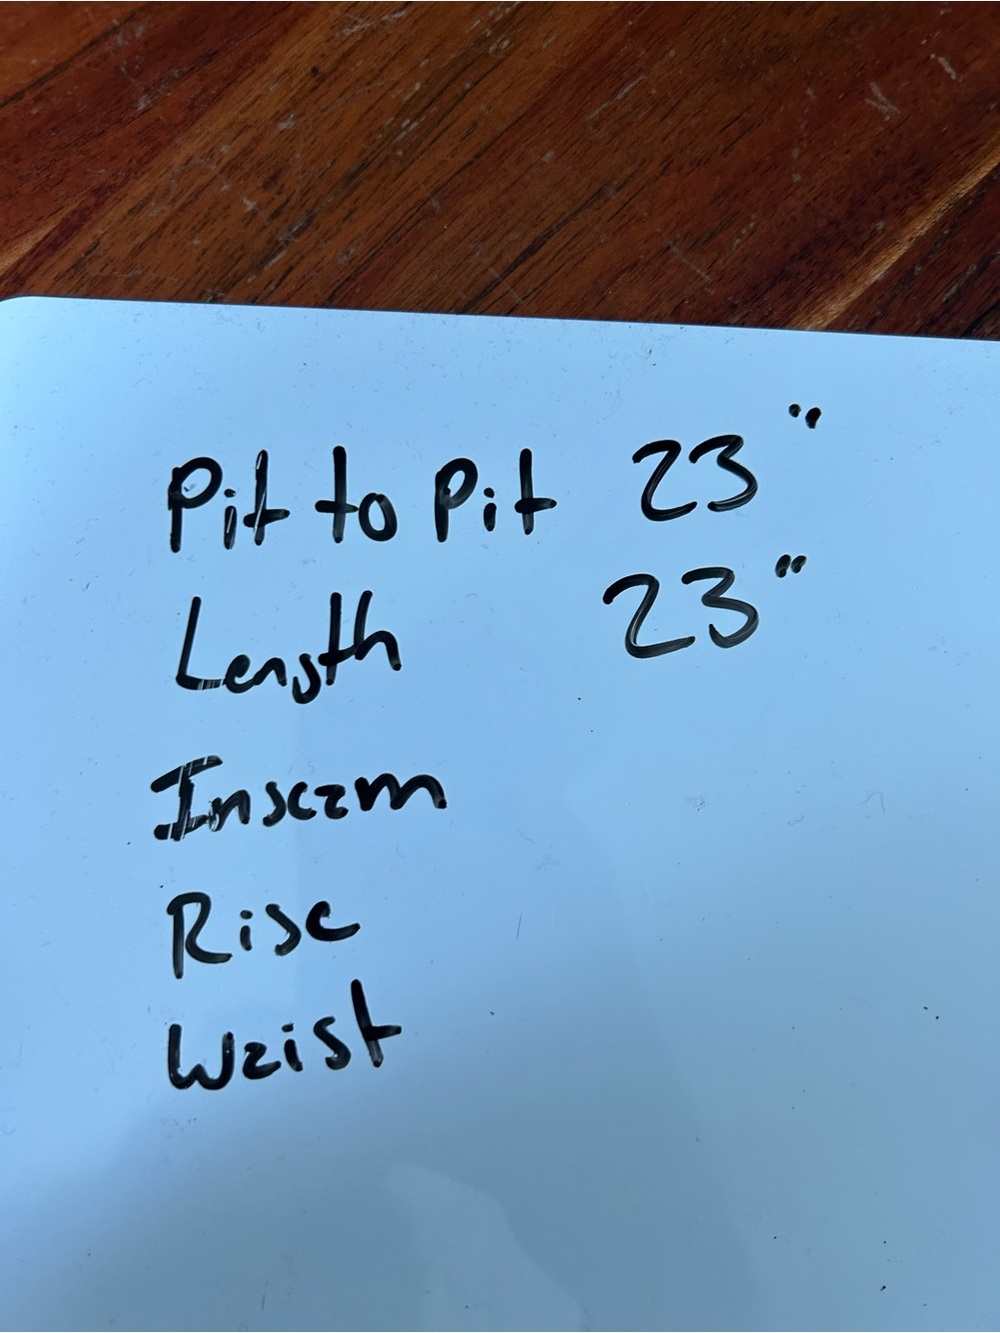 Pit to Pit 23"
Length 23"
Inseam
Rise
Waist